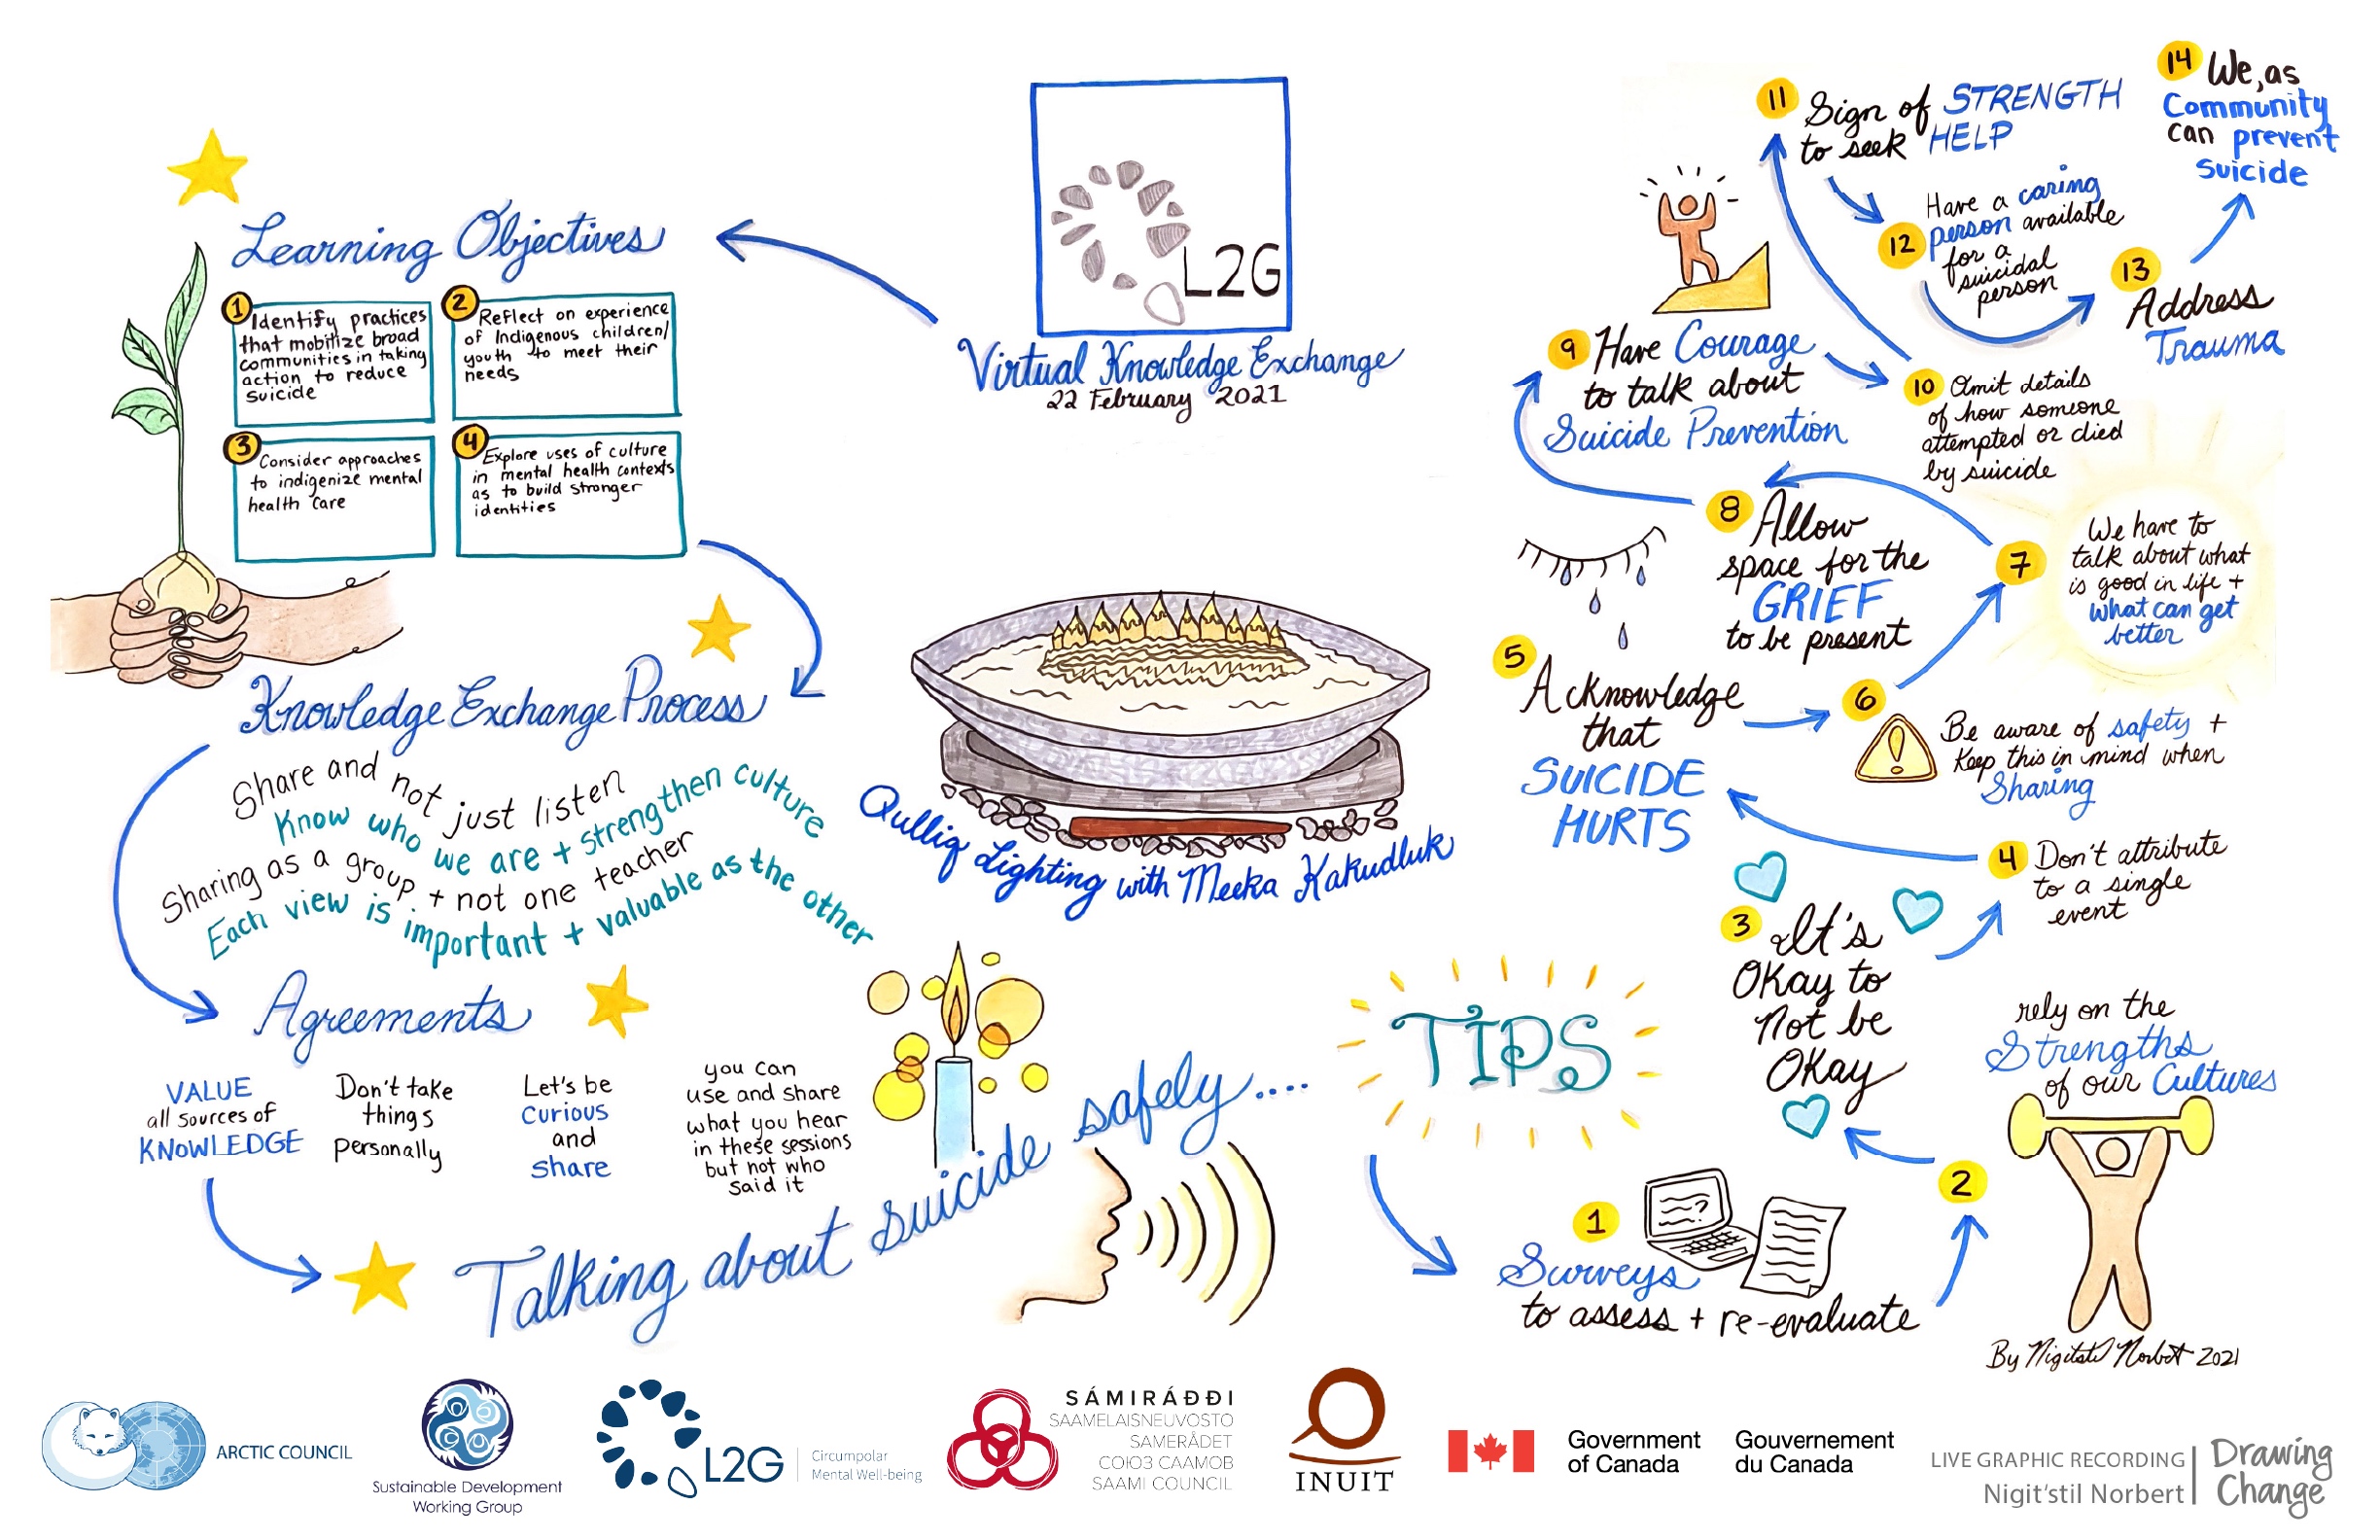 L2G
Virtual Knowledge Exchange
22 February 2021
Learning Objectives
1
Identify practices
that mobilize broad
communities in taking
action to reduce
suicide
2
Reflect on experience
of Indigenous children/
youth to meet their
needs
3
Consider approaches
to indigenize mental
health care
4
Explore uses of culture
in mental health contexts
as to build stronger
identities
Knowledge Exchange Process
Share and not just listen
Know who we are + strengthen culture
Sharing as a group + not one teacher
Each view is important + valuable as the other
Agreements
VALUE
all sources of
KNOWLEDGE
Don't take
things
personally
Let's be
curious
and
share
you can
use and share
what you hear
in these sessions
but not who
said it
Qulliq Lighting with Meeka Kakudluk
Talking about suicide safely....
TIPS
1
Surveys
to assess + re-evaluate
2
rely on the
Strengths
of our Cultures
3
It's
Okay to
Not be
Okay
4
Don't attribute
to a single
event
5
Acknowledge
that
SUICIDE
HURTS
6
Be aware of safety +
Keep this in mind when
Sharing
7
We have to
talk about what
is good in life +
what can get
better
8
Allow
space for the
GRIEF
to be present
9
Have Courage
to talk about
Suicide Prevention
10
Omit details
of how someone
attempted or died
by suicide
11
Sign of STRENGTH
to seek HELP
12
Have a caring
person available
for a
suicidal
person
13
Address
Trauma
14
We, as
Community
can prevent
suicide
By Nigit'stil Norbert 2021
ARCTIC COUNCIL
Sustainable Development
Working Group
L2G
Circumpolar
Mental Well-being
SÁMIRÁĐĐI
SAAMELAISNEUVOSTO
SAMERÅDET
СОЮЗ СААМОВ
SAAMI COUNCIL
INUIT
Government
of Canada
Gouvernement
du Canada
LIVE GRAPHIC RECORDING
Nigit'stil Norbert
Drawing
Change